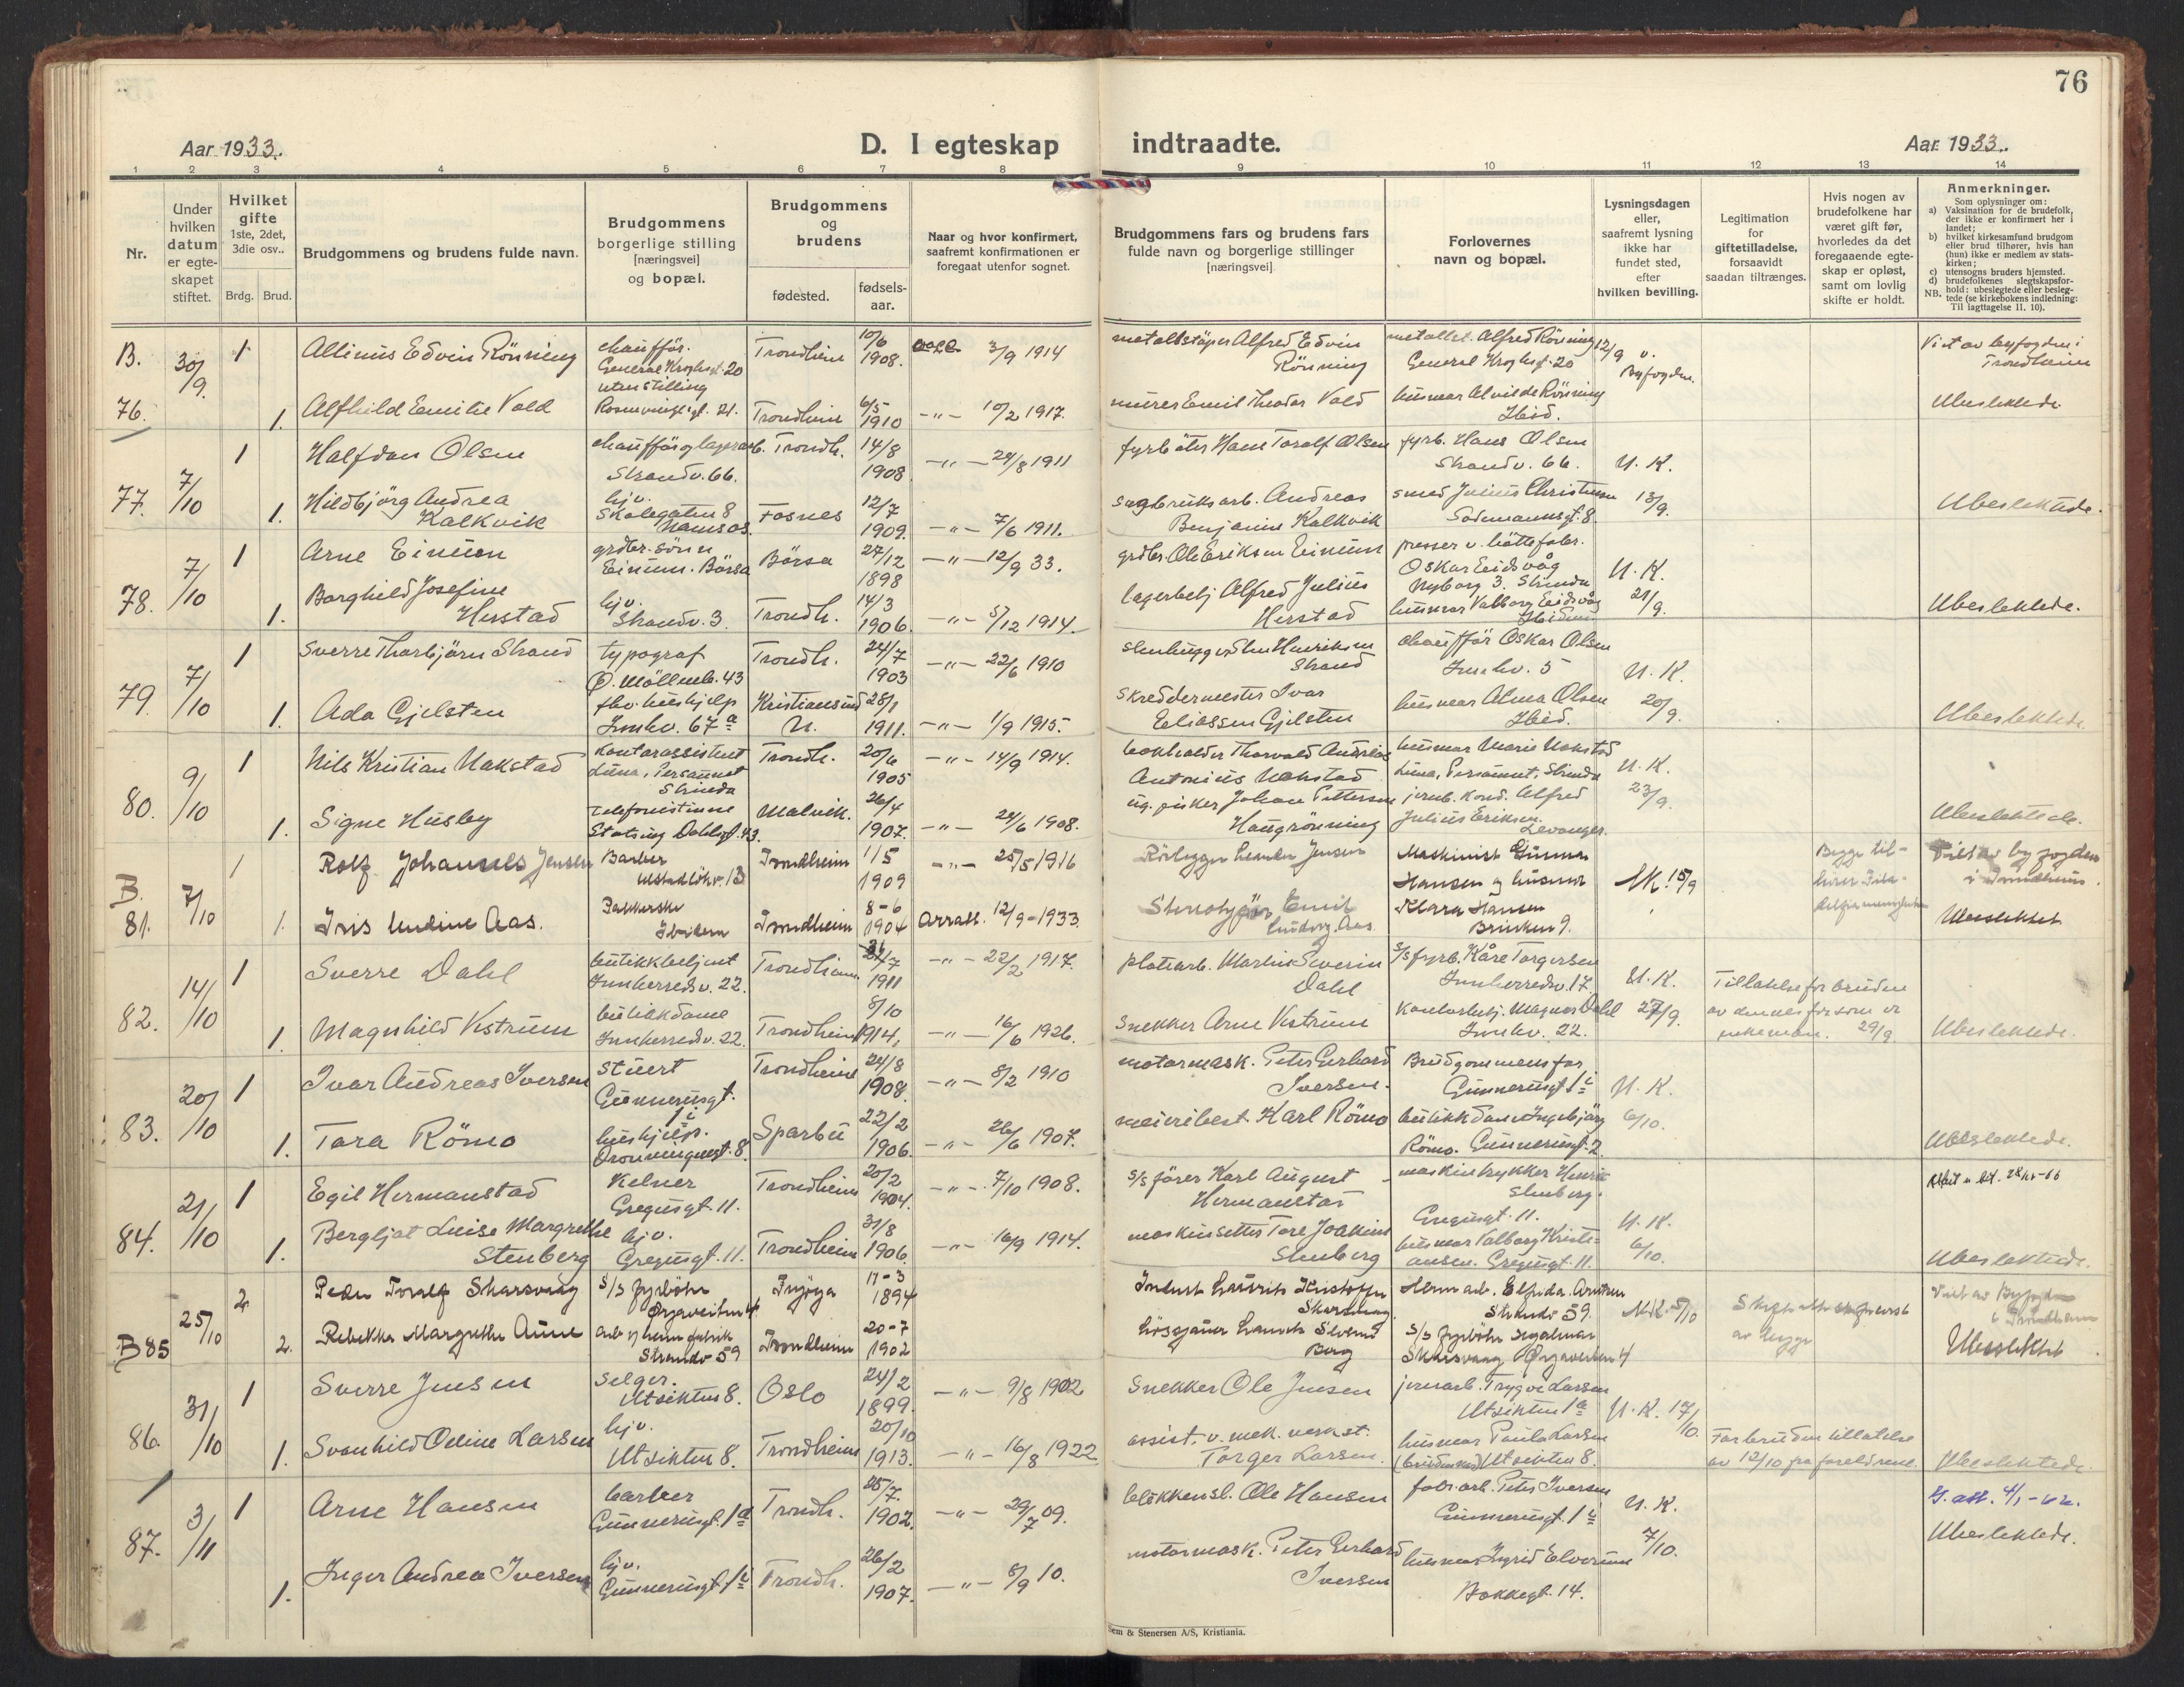 76
Aar 1933. D. I egteskap indtraadte. Aar 1933.
1 2 3 4 5 6 7 8 9 10 11 12 13 14
Nr.
Under hvilken datum er egteskapet stiftet.
Hvilket gifte 1ste, 2det, 3die osv..
Brdg. Brud.
Brudgommens og brudens fulde navn.
Brudgommens borgerlige stilling [næringsvei] og bopæl.
Brudgommens og brudens
fødested. fødselsaar.
Naar og hvor konfirmert, saafremt konfirmationen er foregaat utenfor sognet.
Brudgommens fars og brudens fars fulde navn og borgerlige stillinger [næringsvei].
Forlovernes navn og bopæl.
Lysningsdagen eller, saafremt lysning ikke har fundet sted, efter hvilken bevilling.
Legitimation for giftetilladelse, forsaavidt saadan tiltrænges.
Hvis nogen av brudefolkene har været gift før, hvorledes da det foregaaende egteskap er opløst, samt om lovlig skifte er holdt.
Anmerkninger.
Som oplysninger om:
a) Vaksination for de brudefolk, der ikke er konfirmert her i landet;
b) hvilket kirkesamfund brudgom eller brud tilhører, hvis han (hun) ikke er medlem av statskirken;
c) utensogns bruders hjemsted.
d) brudefolkenes slegtskapsforhold: ubeslegtede eller beslegtede (se kirkebokens indledning: Til iagttagelse II. 10).
NB.
B. 76. 30/9. 1 Allinus Edvin Rönning chaufför. General Kroghsgt. 20 Trondheim 10/6 1908. 3/9 1914 metallstöper Alfred Edvin Rönning metallst. Alfred Rönning General Kroghsgt. 20 12/9 v. Byfogden. Viet av byfogden i Trondheim
1. Alfhild Emilie Vold uten stilling 21. Trondheim 6/5 1910 -"- 10/2 1917. murer Emil Theodor Vold husmor Alvilde Rönning Ibid. Ubeslektede
77. 7/10 1 Halfdan Olsen chaufför og lagerarb. Strandv. 66. Trondh. 14/8 1908 -"- 24/8 1911 fyrböter Hans Toralf Olsen fyrb. Hans Olsen Strandv. 66. U. K. 13/9.
1. Hildbjörg Andrea Kalkvik hjv. Skolegaten 8 Namsos. Fosnes 12/7 1909. -"- 7/6 1911. sagbruksarb. Andreas Benjamin Kalkvik smed Julius Christensen Sodemannsgt. 8. Ubeslektede.
78. 7/10 1 Arne Eimun grdbr. sönn Eimun. Börsa Börsa 27/12 1898 -"- 12/9 33. grdbr. Ole Eriksen Eimun presser v. hattefabr. Oskar Eidsvåg Nyborg 3, Strinda U. K. 21/9.
1. Borghild Josefine Herstad hjv. Strandv. 3. Trondh. 14/3 1906. -"- 5/12 1914. lagerbetj. Alfred Julius Herstad husmor Valborg Eidsvåg Ibidem Ubeslektede.
79. 7/10 1 Sverre Thorbjörn Strand typograf Ö. Möllenb. 43 Trondh. 24/7 1903 -"- 22/6 1910 Henriksen Strand chaufför Oskar Olsen Innhv. 5 U. K. 20/9.
1. Ada Gjelsten fhv. hushjelp Innhv. 67a Kristiansund N. 28/1 1911. -"- 1/9 1915. skreddermester Ivar Eliassen Gjelsten husmor Alma Olsen Ibid. Ubeslektede.
80. 9/10 1 Nils Kristian Nakstad kontorassistent Luna, Persaunet Strinda Trondh. 20/6 1905 -"- 14/9 1914. bokholder Thorvald Andreas Antonius Nakstad husmor Marie Nakstad Luna, Persaunet, Strinda U. K. 23/9.
1. Signe Husby telefonistinne Statsing. Dahlsgt. 43. Malvik. 26/4 1907. -"- 24/6 1908. Johan Pettersen Haugrönning jernb. kond. Alfred Julius Eriksen. Levanger. Ubeslektede.
B. 81. 7/10 1 Rolf Johannes Jensen Barber 13 Trondheim 1/5 1909 -"- 25/5 1916 Rörlegger Leander Jensen Maskinist Gunnar Hansen og husmor Klara Hansen Brinken 9. 15/9 Begge tilhörer Viet av byfogden i Trondheim.
1. Iris Undine Aas. Pakkerske Ibidem Trondheim 8-6 1904 12/9-1933. Stereotypör Emil Ludvig Aas Ubeslektet
82. 14/10 1 Sverre Dahl butikkbetjent Innherredsv. 22. Trondheim 7 1911 -"- 22/2 1917. platearb. Martin Severin Dahl s/s fyrb. Kåre Torgersen Innherredsv. 17. U. K. 27/9. Tillatelse for bruden av dennes far som er enkemann. 29/9
1. Magnhild Vestrum butikkdame Innherredsv. 22. Trondheim 8/10 1914. -"- 16/6 1926. snekker Arne Vestrum kontorbetj. Magnus Dahl Innhv. 22. Ubeslektede.
83. 20/10 1 Ivar Andreas Iversen stuert Gunnerusgt. 1c Trondheim 24/8 1908. -"- 8/2 1910 motormask. Peter Gerhard Iversen. Brudgommens far Gunnerusgt 1c U. K. 6/10.
1. Tora Römo hushjelp. Dronningensgt. 8. Sparbu 22/2 1906. -"- 26/6 1907. meieribest. Karl Römo butikkdame Ingebjörg Römo. Gunnerusgt. 2. Ubeslektede.
84. 21/10 1 Egil Hermanstad Kelner Gregusgt. 11. Trondheim 20/2 1904. -"- 7/10 1908. s/s förer Karl August Hermanstad maskintrykker Henrik Stenberg. Gregusgt. 11. U. K. 6/10.
1. Bergljot Luise Margrethe Stenberg hjv. Gregusgt. 11. Trondheim 31/8 1906. -"- 16/9 1914. maskinsetter Tore Joakim Stenberg husmor Valborg Kristiansen. Gregusgt. 11. Ubeslektede.
B 85 25/10 2 Peder Toralf Skarsvaag s/s fyrböter 4. Fröya 11-3 1894 Kristoffer Skarsvaag Strandv 59. 5/10 av begge Viet av Byfogden i Trondheim
2. Rebekka Margrethe Aune Strandv 59 Trondheim 20-7 1902 Berg s/s fyrböter Skarsvaag 4 Ubeslektet
86. 31/10 1 Sverre Jensen selger. Utsikten 8. Oslo 24/2 1899. -"- 9/8 1902 snekker Ole Jensen jernarb. Trygve Larsen Utsikten 1a U. K. 17/10.
1. Svanhild Odine Larsen hjv. Utsikten 8. Trondheim 20/10 1913. -"- 16/8 1922 assist. v. mek. verkst. Torger Larsen. husmor Paula Larsen Utsikten 8. For bruden tillatelse av 12/10 fra foreldrene. Ubeslektede.
87. 3/11 1 Arne Hansen barber Gunnerusgt. 1a Trondh. 25/7. 1902. -"- 29/7 09. blikkensl. Ole Hansen fabr. arb. Peter Iversen Gunnerusgt. 1c U. K. 7/10. Ubeslektede.
1. Inger Andrea Iversen hjv. Gunnerusgt. 1c Trondh. 26/2 1907. -"- 8/9 10. motormask. Peter Gerhard Iversen husmor Ingrid Elverum Bakkegt. 14.
Sem & Stenersen A/S, Kristiania.